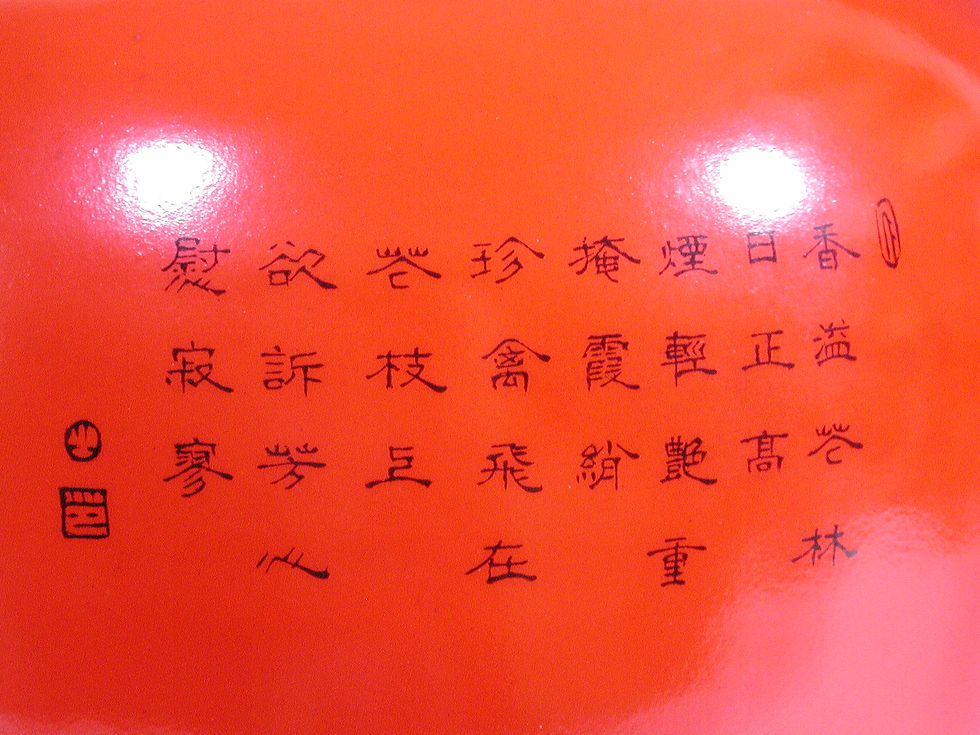 香溢花林
日正高
煙輕艷重
掩霞綃
珍禽飛在
花枝上
欲訴芳心
慰寂寥